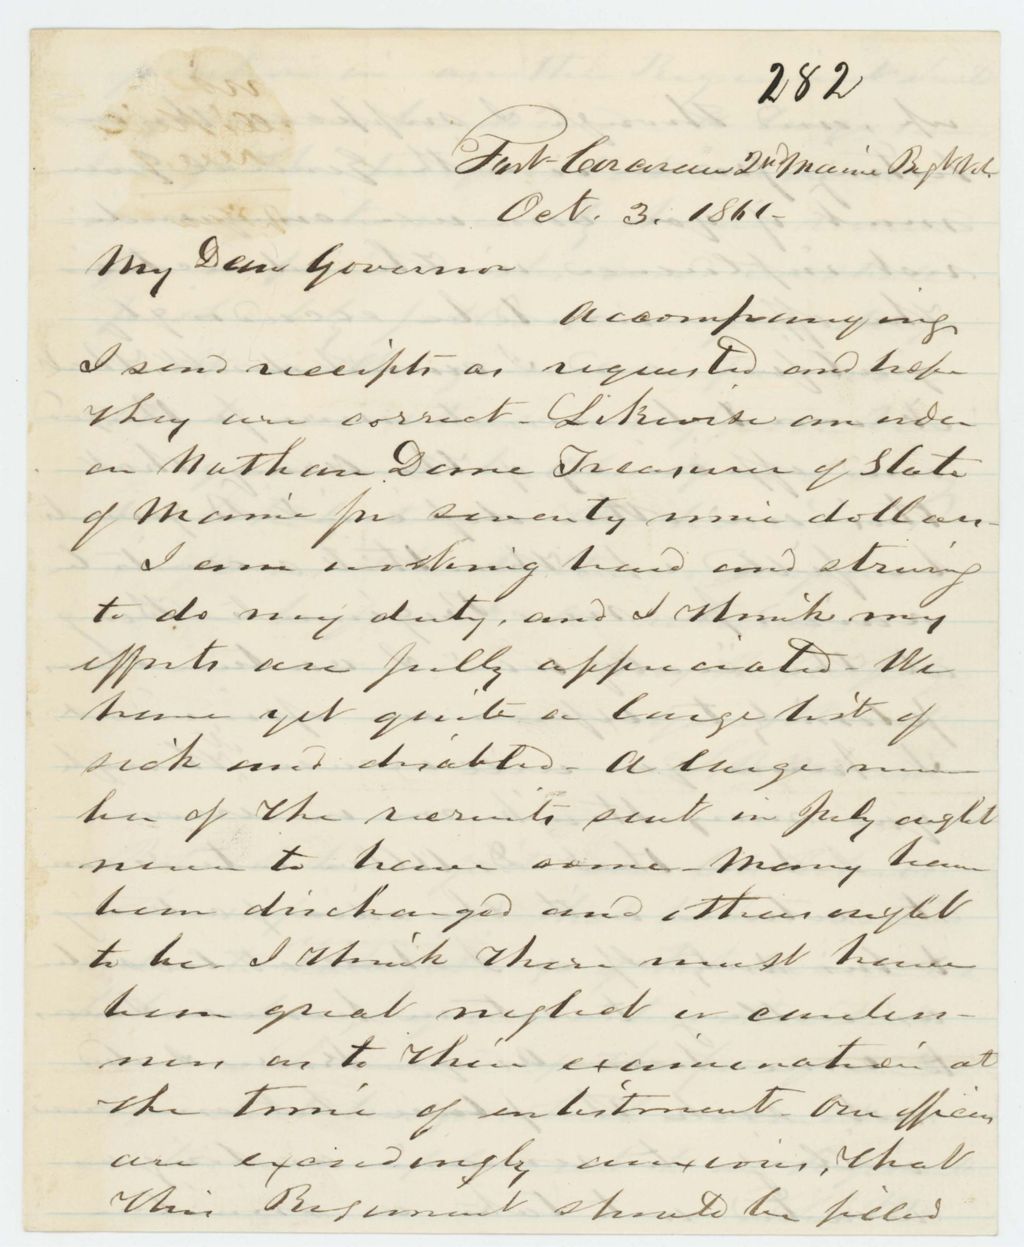 282
Fort Corcoran 2nd Maine Regt Vol.
Oct. 3. 1861-
My Dear Governor
Accompanying
I send receipts as requested and hope
they are correct - Likewise an order
on Nathan Dane Treasurer of State
of Maine for seventy nine dollars-
I am working hard and striving
to do my duty, and I think my
efforts are fully appreciated - We
have yet quite a large list of
sick and disabled - A large num
ber of the recruits sent in July ought
never to have come - Many have
been discharged and others ought
to be - I think there must have
been great neglect or careless-
ness as to their examination at
the time of enlistment - Our officers
are exceedingly anxious, that
this Regiment should be filled